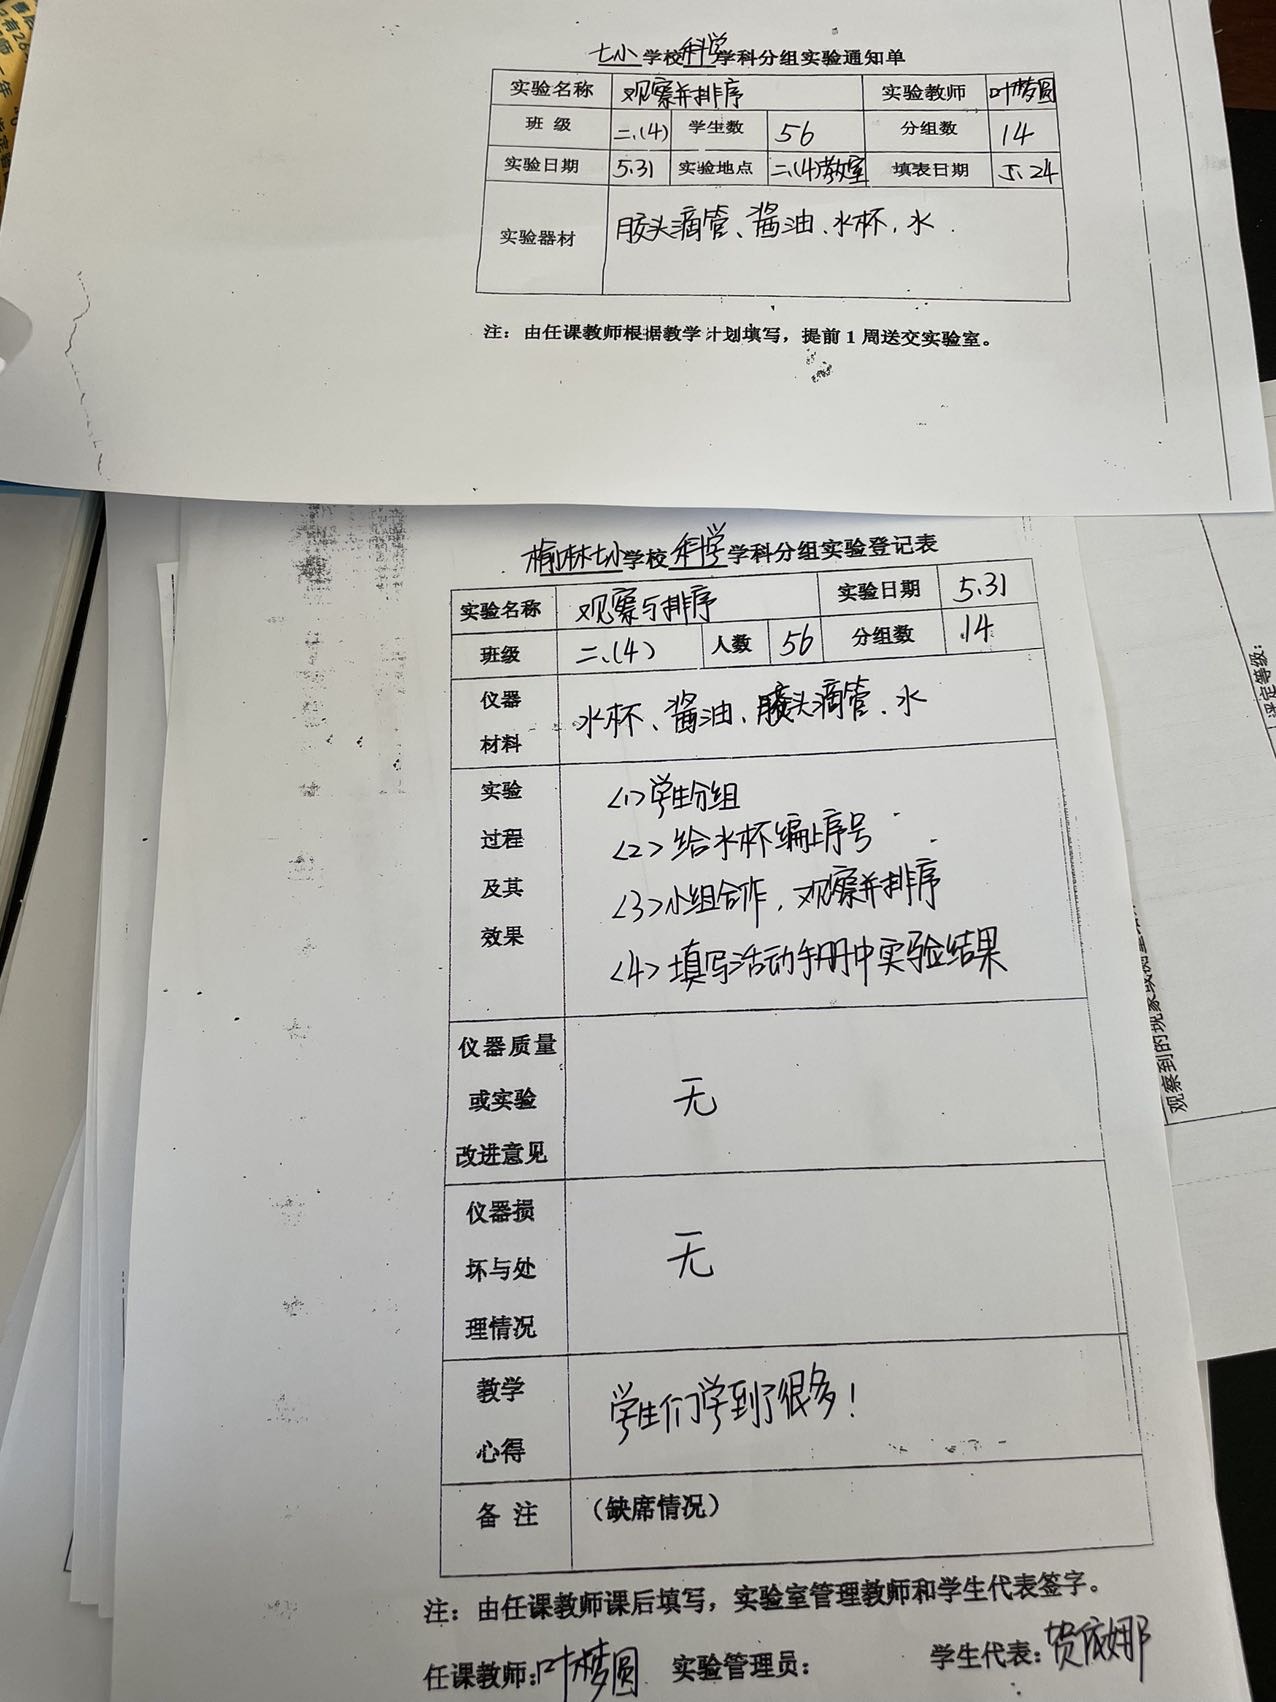 七小学校科学学科分组实验通知单
实验名称 观察并排序 实验教师 叶梦圆
班 级 二、(4) 学生数 56 分组数 14
实验日期 5.31 实验地点 二、(4)教室 填表日期 5.24
实验器材 胶头滴管、酱油、水杯、水
注：由任课教师根据教学计划填写，提前1周送交实验室。
榆林七小学校科学学科分组实验登记表
实验名称 观察与排序 实验日期 5.31
班级 二、(4) 人数 56 分组数 14
仪器
材料
水杯、酱油、胶头滴管、水
实验
过程
及其
效果
<1>学生分组
<2>给水杯编上序号
<3>小组合作，观察并排序
<4>填写活动手册中实验结果
仪器质量
或实验
改进意见
无
仪器损
坏与处
理情况
无
教学
心得
学生们学到了很多！
备 注 （缺席情况）
注：由任课教师课后填写，实验室管理教师和学生代表签字。
任课教师：叶梦圆 实验管理员： 学生代表：贺依娜
评定等级：
观察到的现象